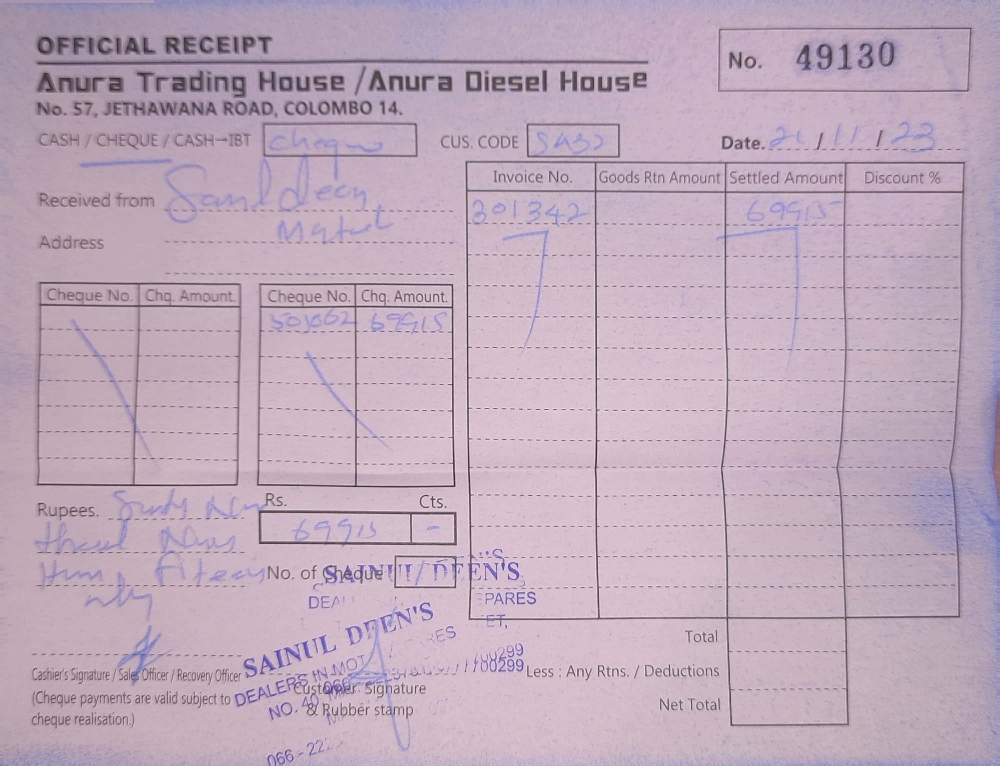 OFFICIAL RECEIPT
No. 49130
Anura Trading House / Anura Diesel House
No. 57, JETHAWANA ROAD, COLOMBO 14.
CASH / CHEQUE / CASH→IBT cheque
CUS. CODE
Date. 21/11/23
Received from
Address
Invoice No. Goods Rtn Amount Settled Amount Discount %
301342 69915
Cheque No. Chq. Amount. Cheque No. Chq. Amount.
501662 69915
Rupees.
Rs. Cts.
69915 -
only
No. of Cheque
SAINUL DEEN'S
SPARES
SAINUL DEEN'S
DEALERS IN MOT
NO. 40
066 - 22
Cashier's Signature / Sales Officer / Recovery Officer
(Cheque payments are valid subject to
cheque realisation.)
Customer Signature
& Rubber stamp
Total
Less : Any Rtns. / Deductions
Net Total